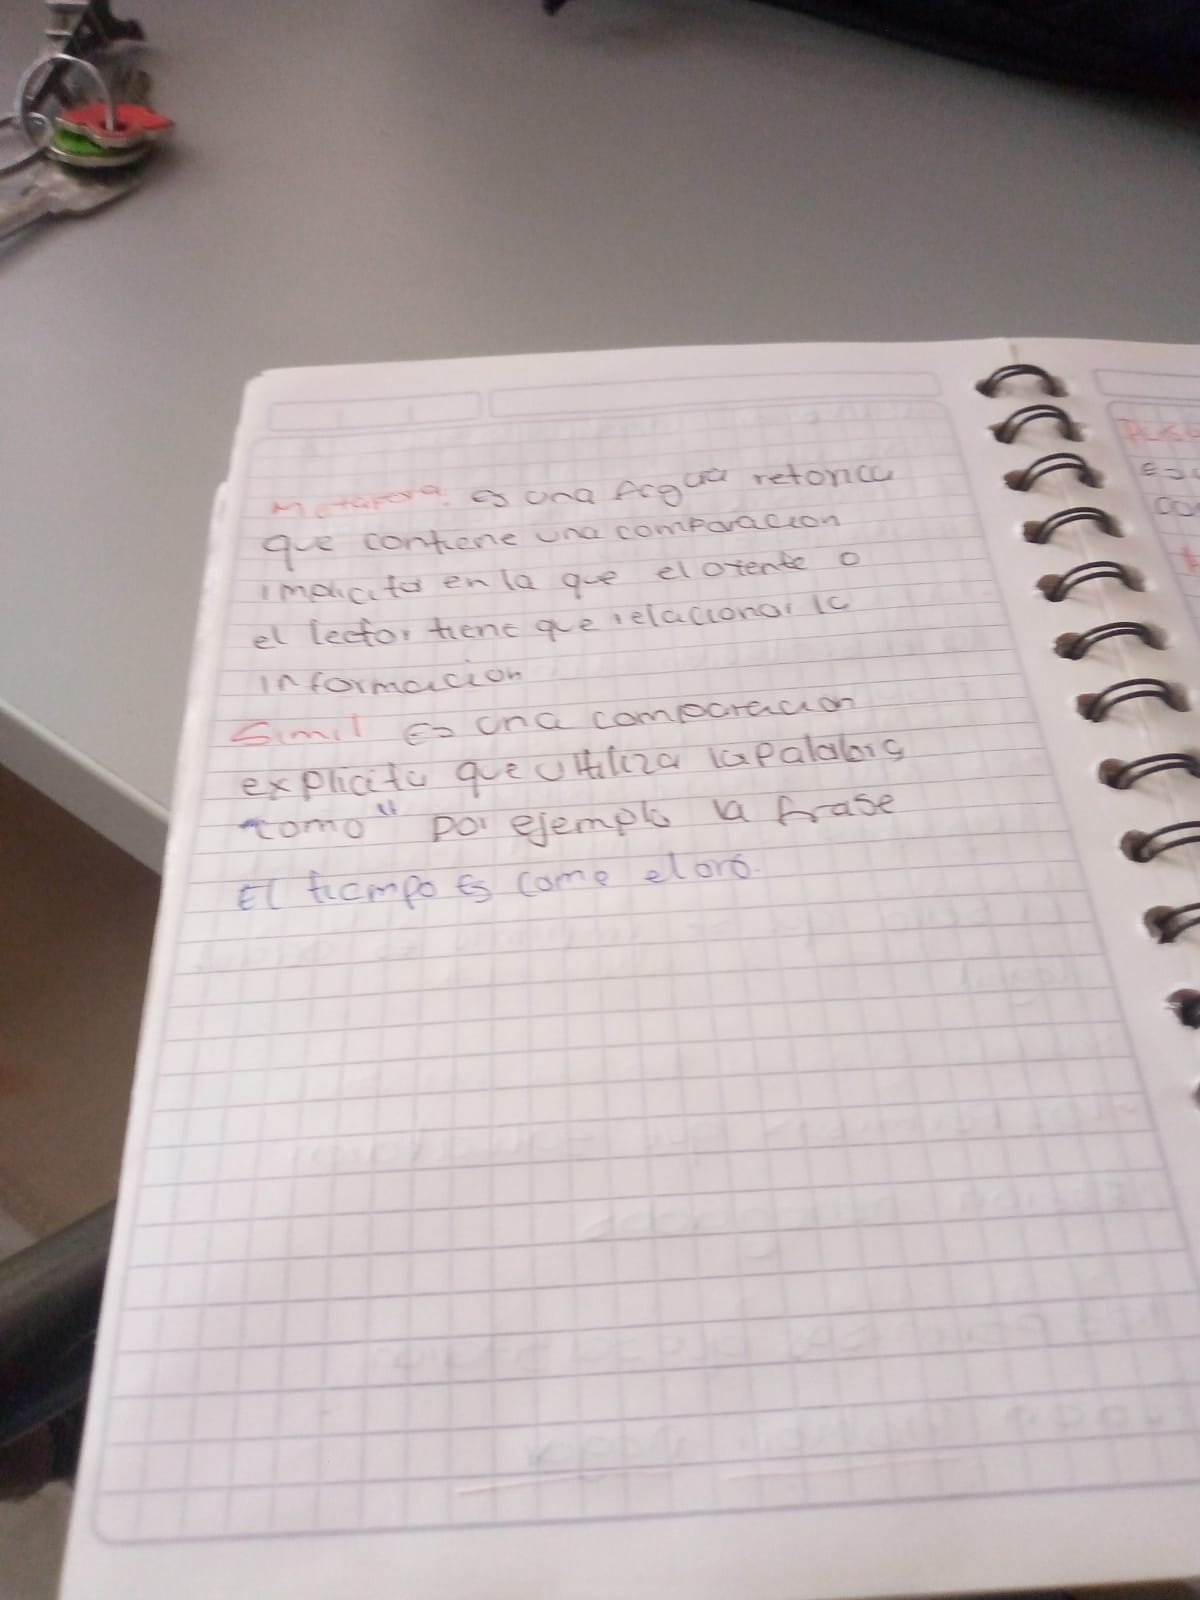 Metafora. es una figua retorica
que contiene una comparacion
implicita en la que el oiente o
el lector tiene que relacionar la
informacion
Simil Es una comparacion
explicita que utiliza la palabra
"como" por ejemplo la frase
El tiempo Es como el oro.
Es